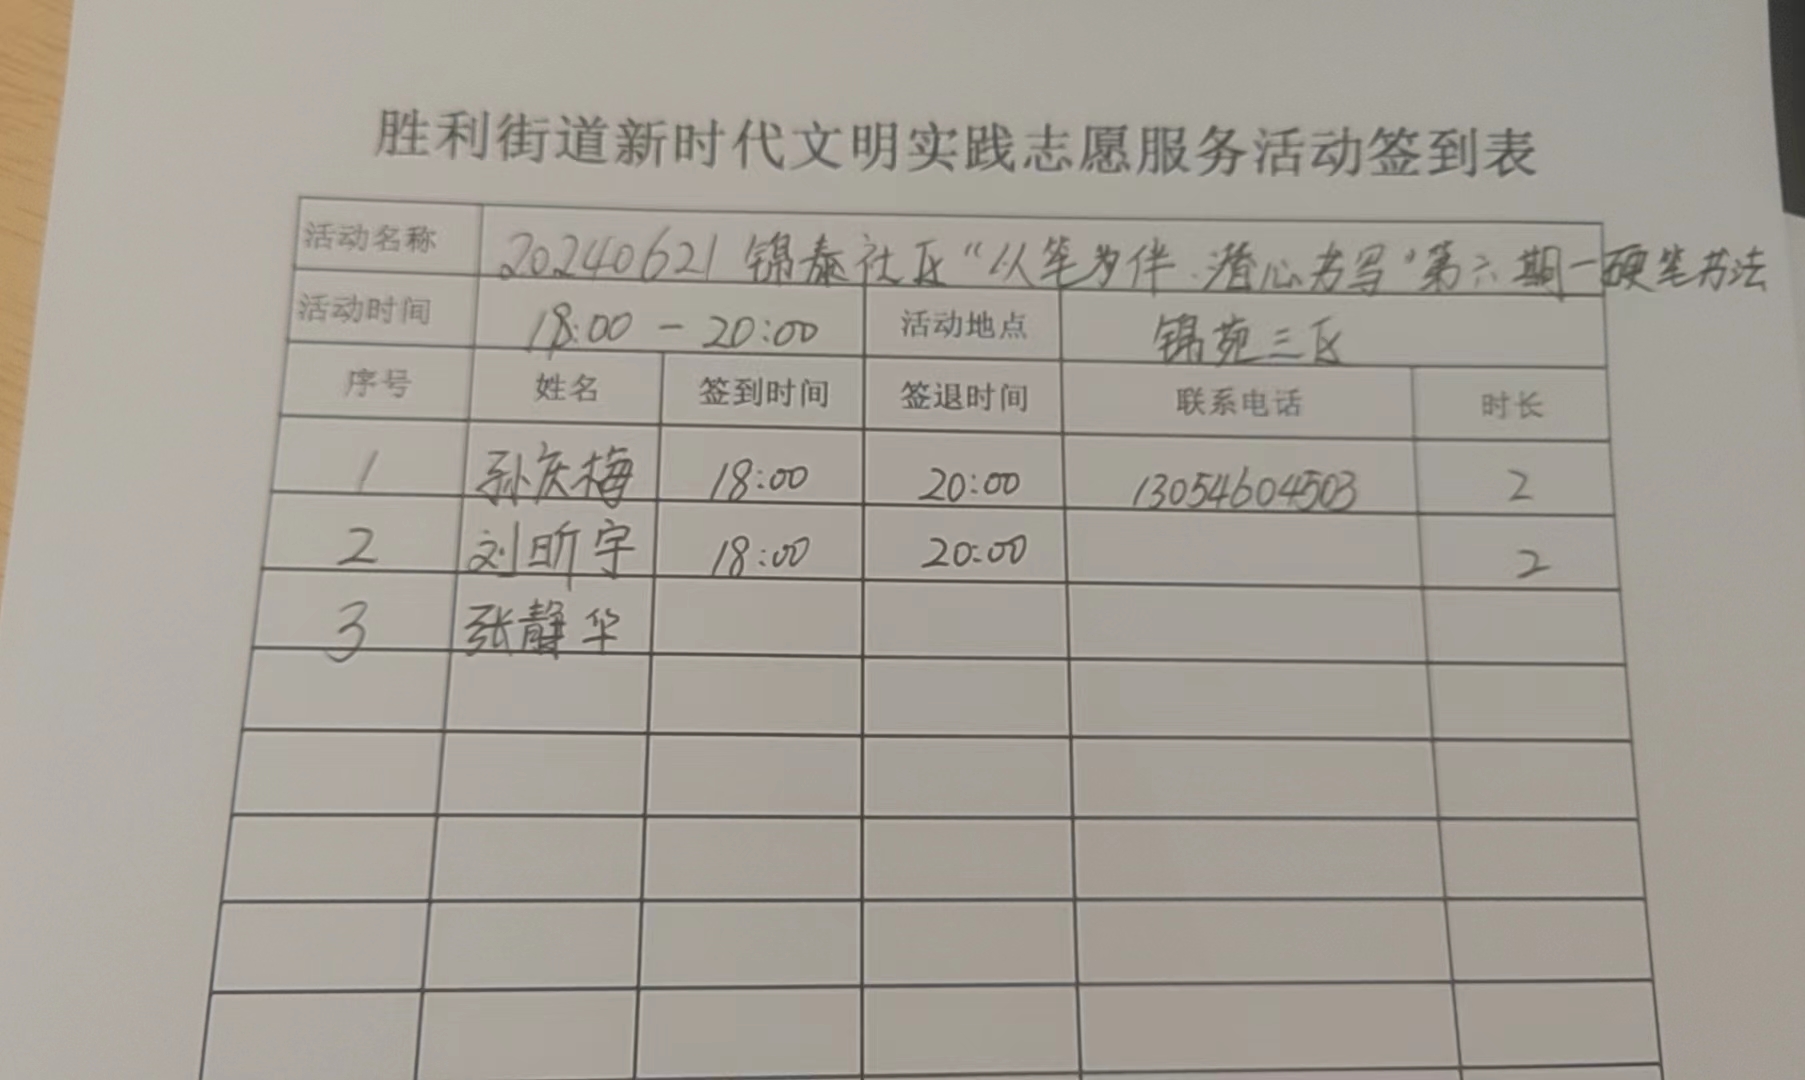 胜利街道新时代文明实践志愿服务活动签到表
活动名称 20240621 锦泰社区“以笔为伴 潜心书写”第六期—硬笔书法
活动时间 18:00 - 20:00 活动地点 锦苑三区
序号 姓名 签到时间 签退时间 联系电话 时长
1 孙庆梅 18:00 20:00 13054604503 2
2 刘昕宇 18:00 20:00 2
3 张静华